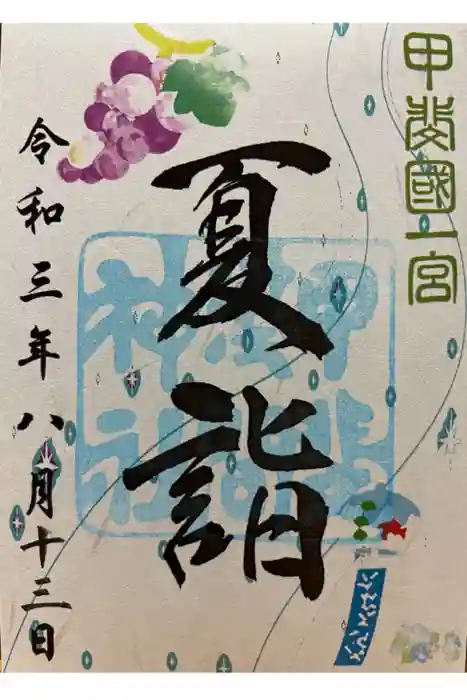 甲斐國一宮
夏詣
甲斐
神社
令和三年八月十三日